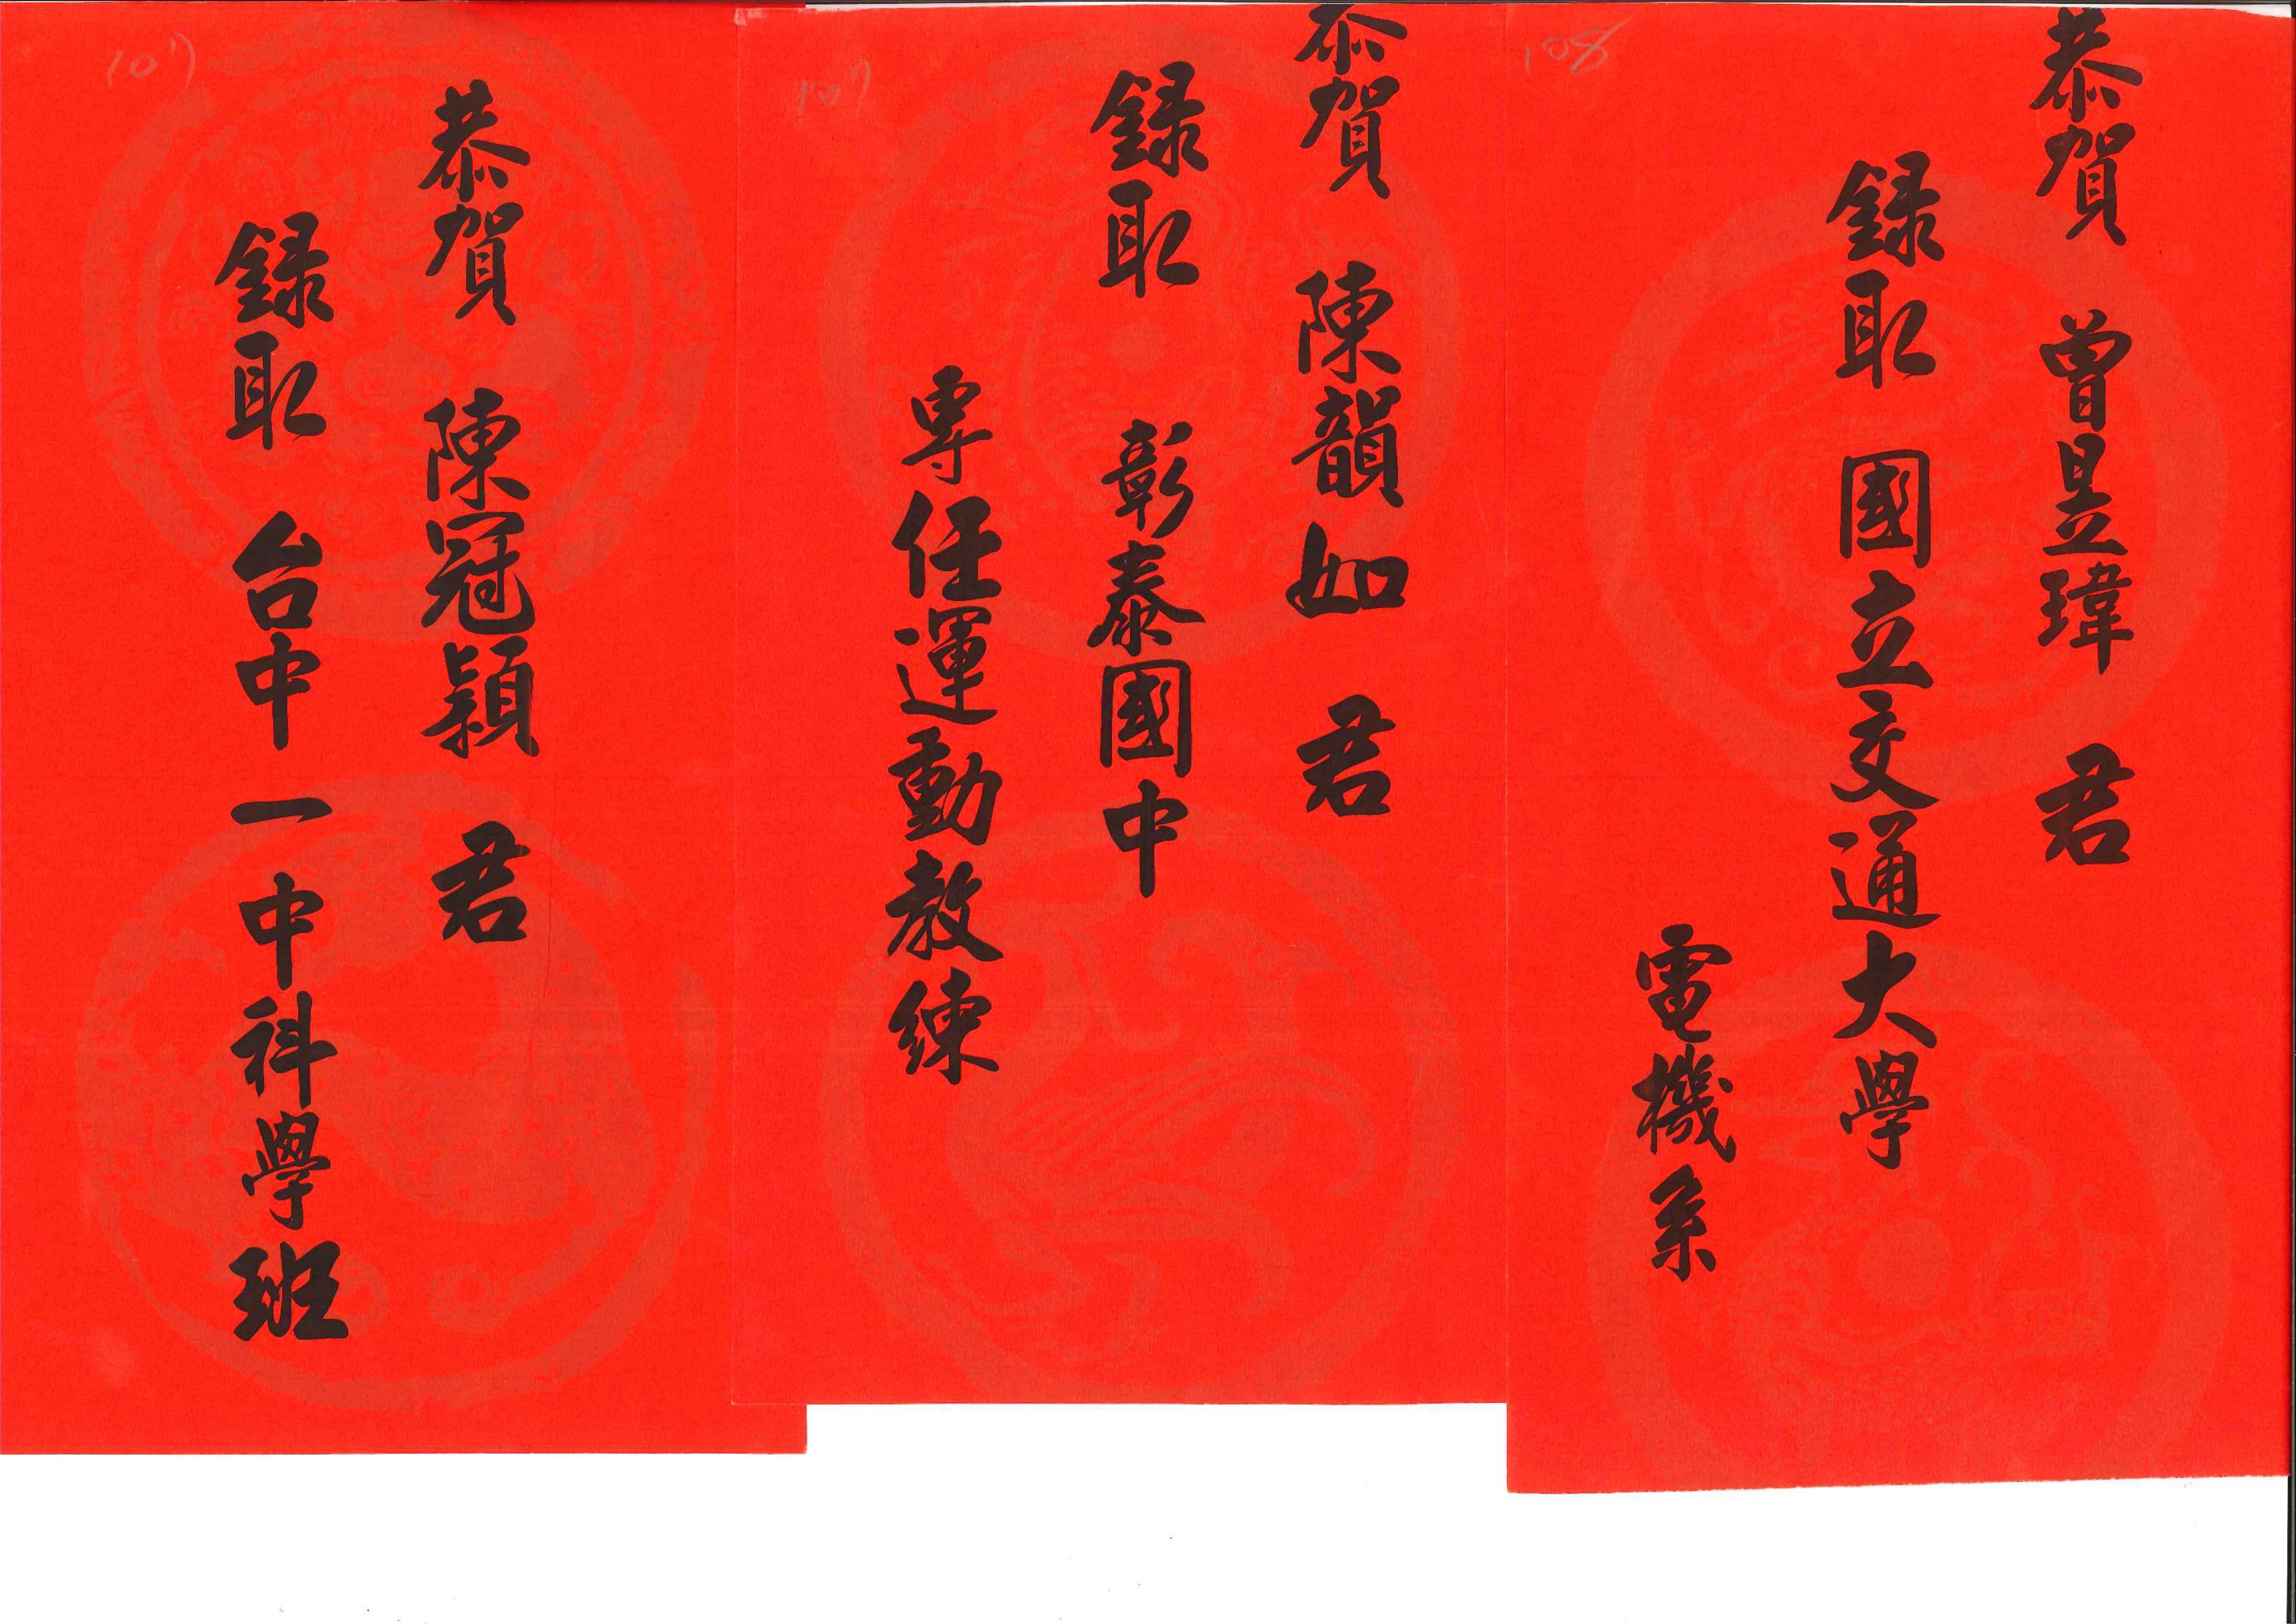 108
恭賀 曾昱瑋 君
錄取 國立交通大學
電機系
107
恭賀 陳韻如 君
錄取 彰泰國中
專任運動教練
107
恭賀 陳冠穎 君
錄取 台中一中科學班